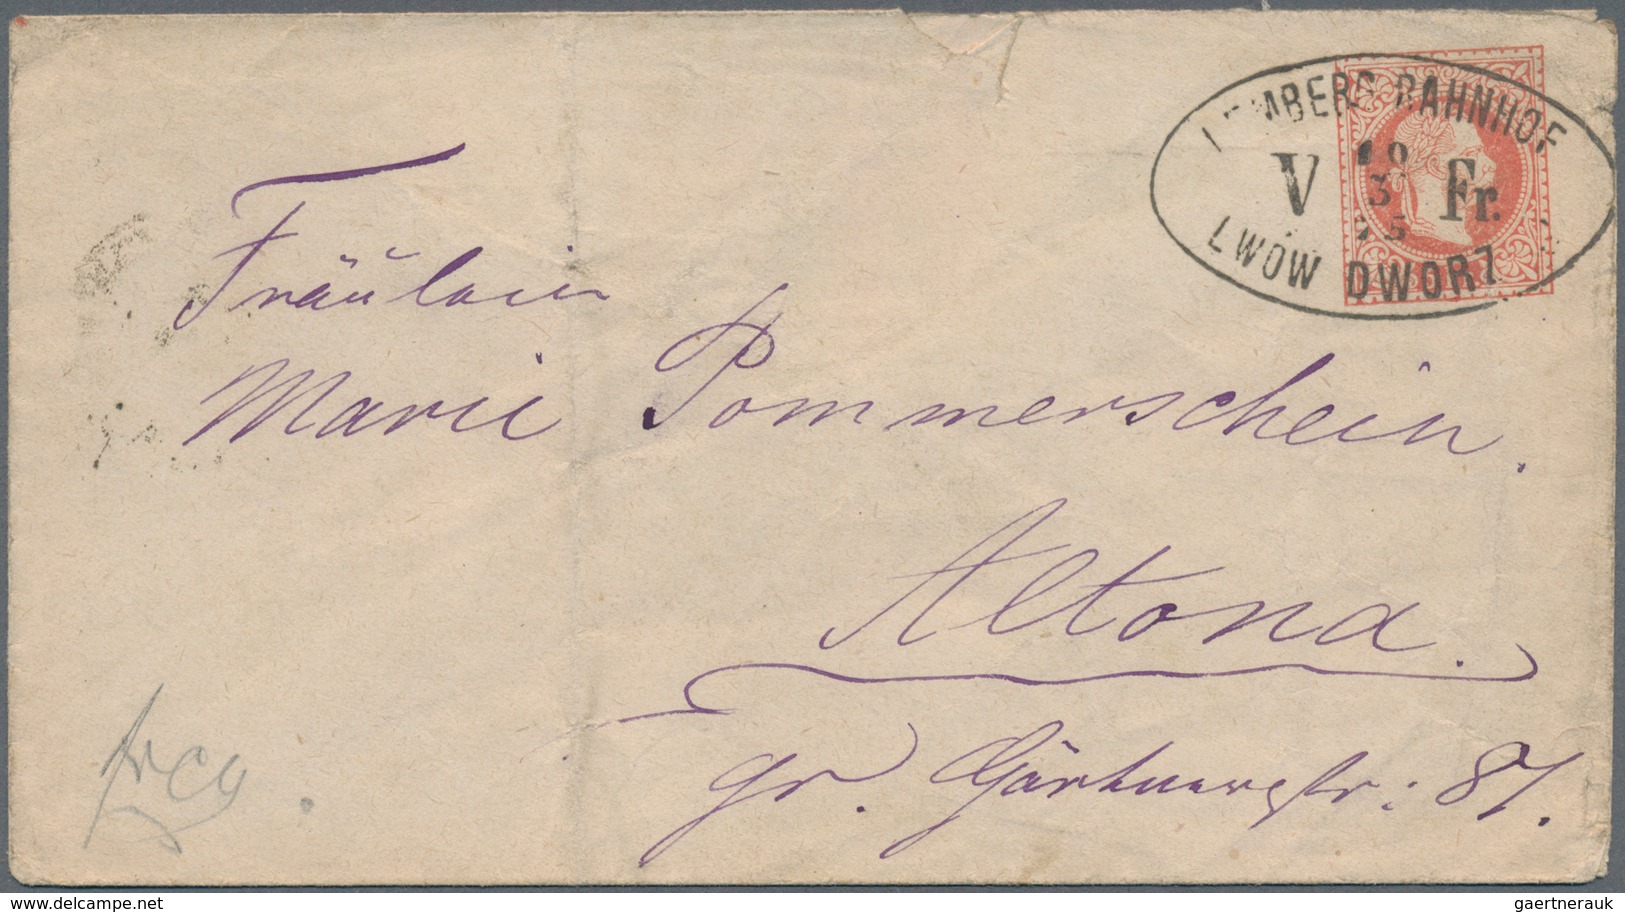 LEMBERG BAHNHOF
V Fr.
3
75
LWÓW DWORZ
Fräulein
Marie Pommerschein.
Altona.
gr. Gärtnerstr: 87.
delcampe.net
gaertnerauk